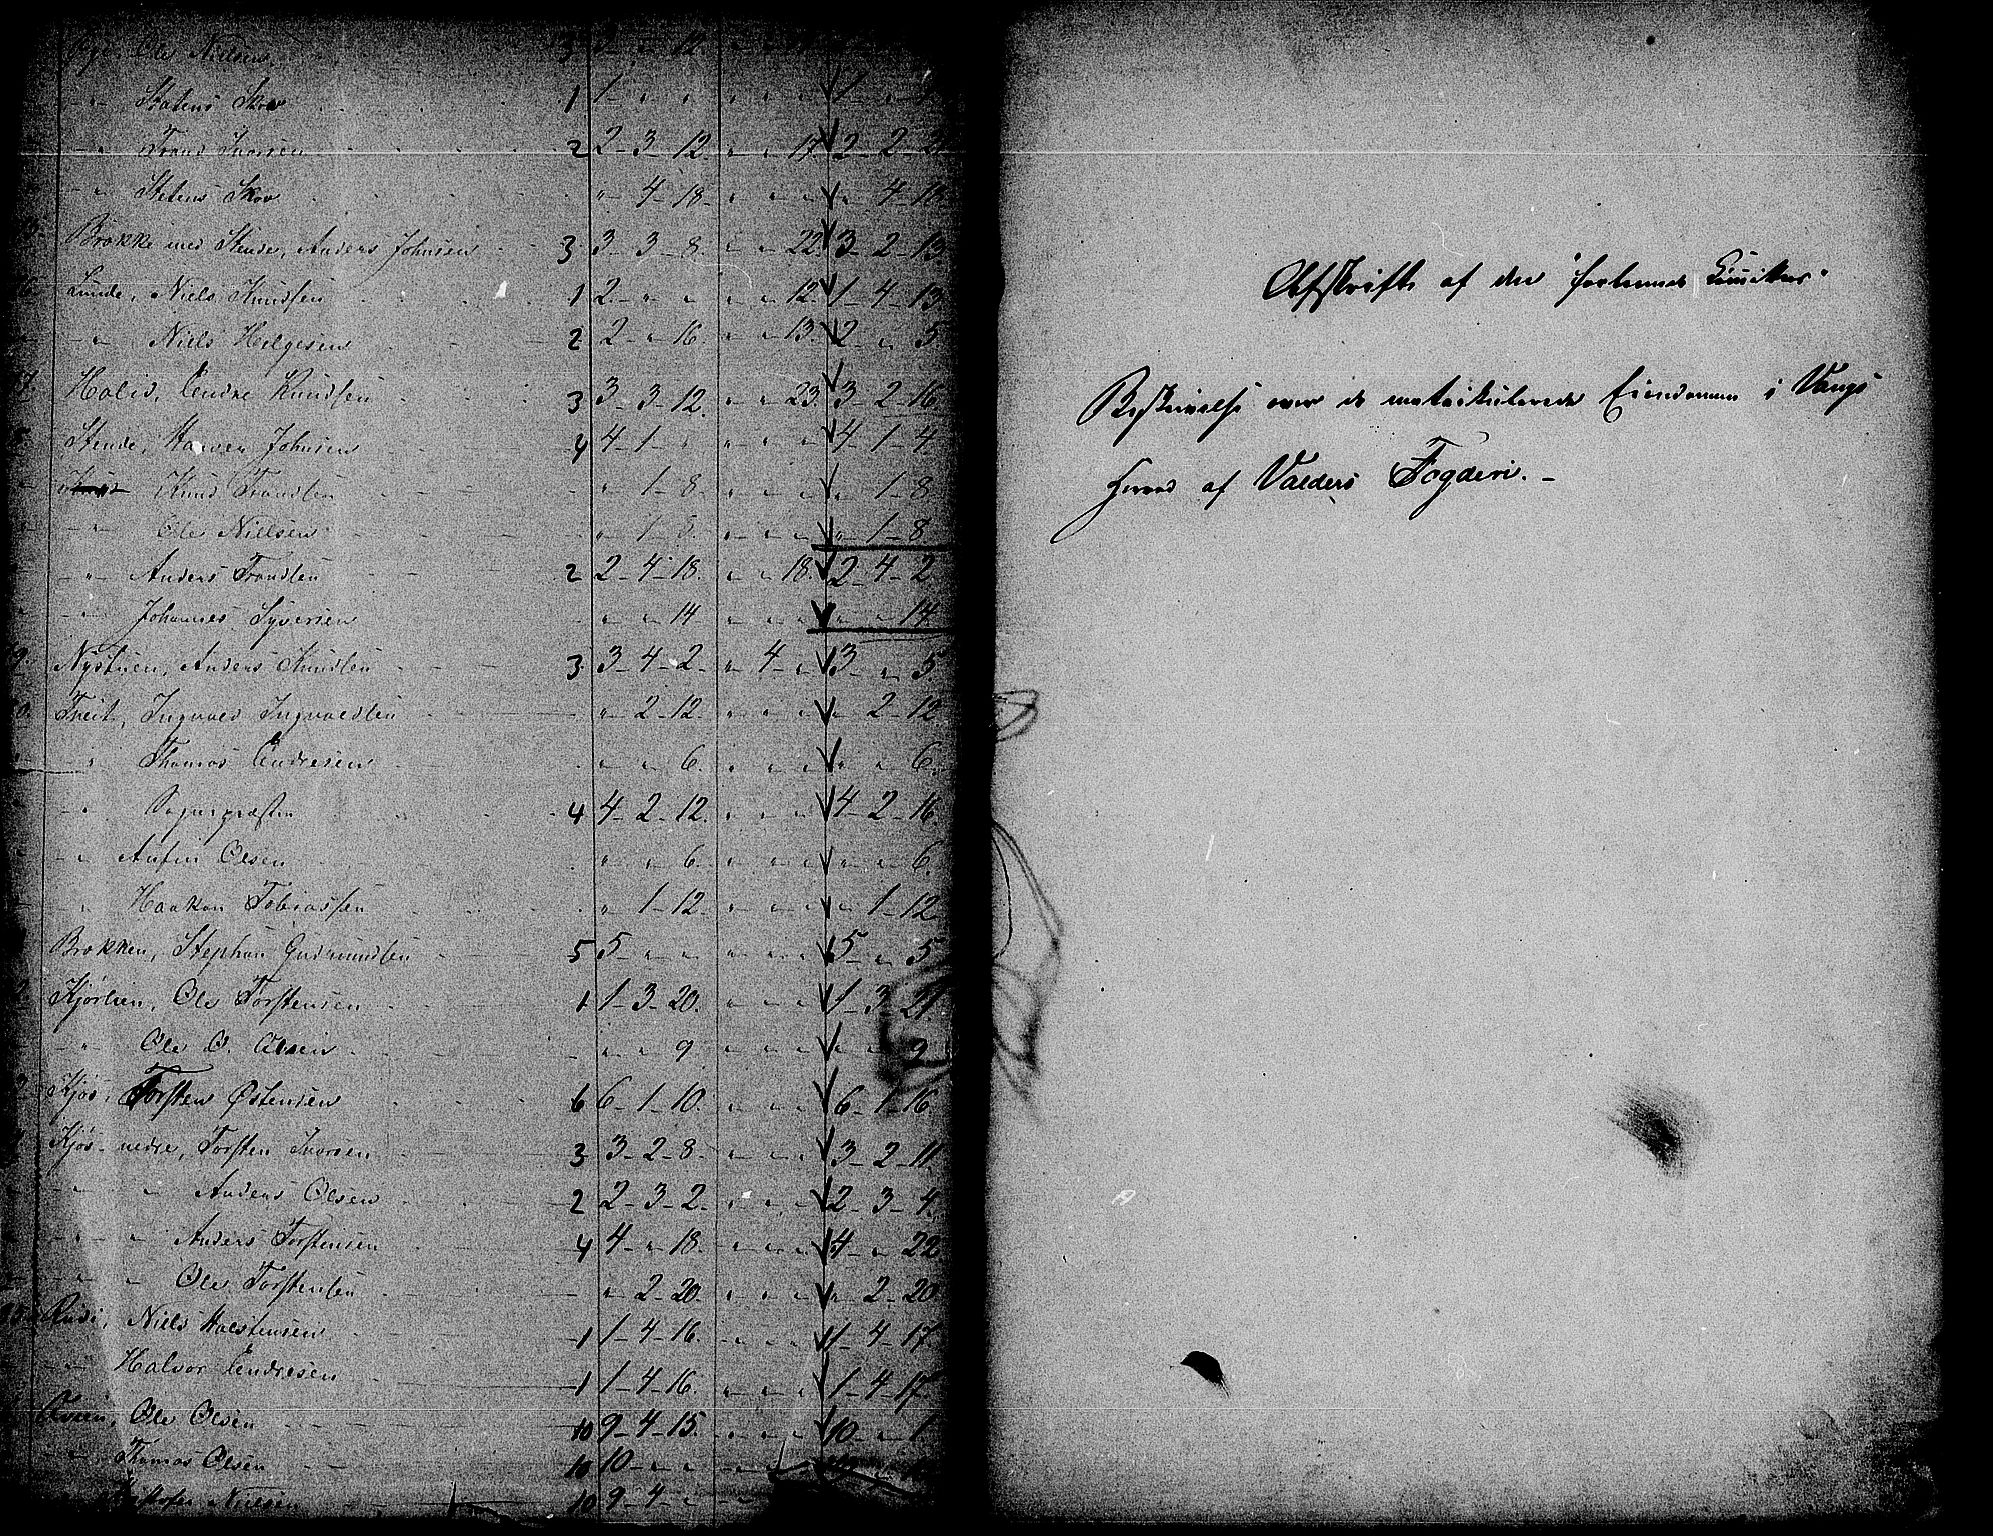 Ole Nielsen 3
" Statens Skov 1 1 - " - " " - " - " 1
" Trond Iversen 2 2 - 3 - 12. " - " - 17 2 - 2 -
" Statens Skov " - 4 - 18. " - " - " " 4 - 18
Brokke med Stende, Anders Johnsen 3 3 - 3 - 8. " - " - 22. 3 - 2 - 13
Lunde, Niels Knudsen 1 2 - " - " " - " - 12. 1 - 4 - 13
" Niels Helgesen 2 2 - " - 16. " - " - 13. 2 - " - 5
Halid, Endre Knudsen 3 3 - 3 - 12. " - " - 23. 3 - 2 - 16
Stende, Johnsen 4 4 - 1 - " " - " - " 4 - 1 - 4
Knud Trondsen " - 1 - 8. " - " - " " - 1 - 8
" Ole Nielsen " - 1 - 8. " - " - " " - 1 - 8
" Anders Trondsen 2 2 - 4 - 18. " - " - 18. 2 - 4 - 2
" Johannes Syversen " - " - 14 " - " - " " - " - 14
Nystuen, Anders Knudsen 3 3 - 4 - 2. " - 4 - " 3 - " - 5
Tveit, Ingvald Ingvaldsen " - 2 - 12. " - " - " " - 2 - 12
" Thomas Endresen " - " - 6. " - " - " " - " - 6.
" Sognepræsten 4 4 - 2 - 12. " - " - " 4 - 2 - 16.
" Anfin Olsen " - " - 6. " - " - " " - " - 6.
" Haakon Tobiassen " - 1 - 12. " - " - " " - 1 - 12
Brokken, Stephan Gudmundsen 5 5 - " - " " - " - " 5 - " - 5
Kjørlien, Ole Torstensen 1 1 - 3 - 20. " - " - " 1 - 3 - 21
" Ole O. " - " - 9 " - " - " " - " - 9
Kjøs, Torsten Østensen 6 6 - 1 - 10. " - " - " 6 - 1 - 16
Kjøs nedre, Torsten Iversen 3 3 - 2 - 8. " - " - " 3 - 2 - 11
" " Anders Olsen 2 2 - 3 - 2. " - " - " 2 - 3 - 4.
" " Anders Torstensen 4 4 - " - 18. " - " - " 4 - " - 22
" " Ole Torstensen " - 2 - 20. " - " - " " - 2 - 20
Rudi, Niels Halstensen 1 1 - 4 - 16. " - " - " 1 - 4 - 17
" Halvor Endresen 1 1 - 4 - 16. " - " - " 1 - 4 - 17
Ole Olsen 10 9 - 4 - 15. " - " - " 10 - " - 1
" Thomas Olsen 10 10 - " - " " - "
Nielsen 10 9 - 4 - " "
Afskrift af den
Beskrivelse over de matrikulerede Eiendomme i Vangs
Herred af Valders Fogderi. -